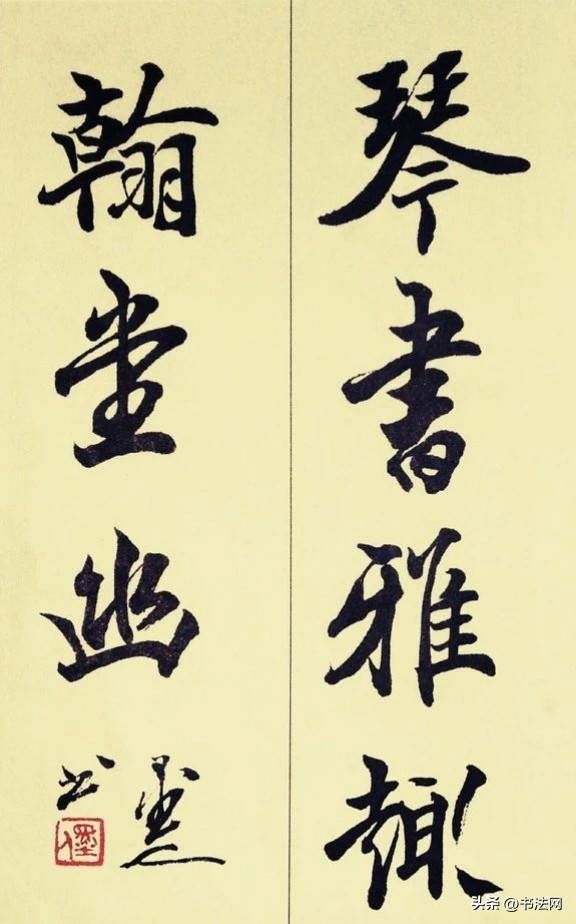 琴書雅趣
翰堂幽
墨人书
头条 @书法网